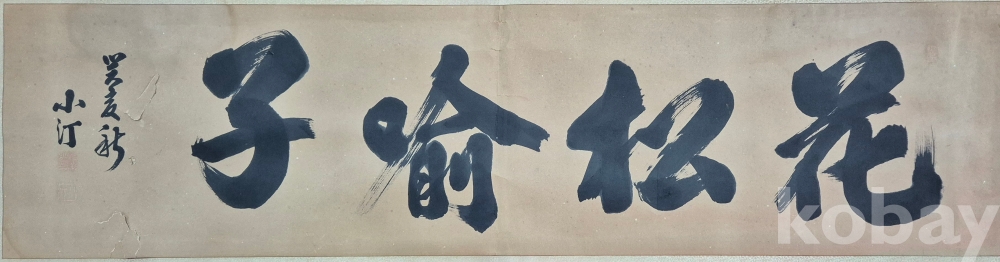 花松喻子
癸亥秋
小汀
kobay